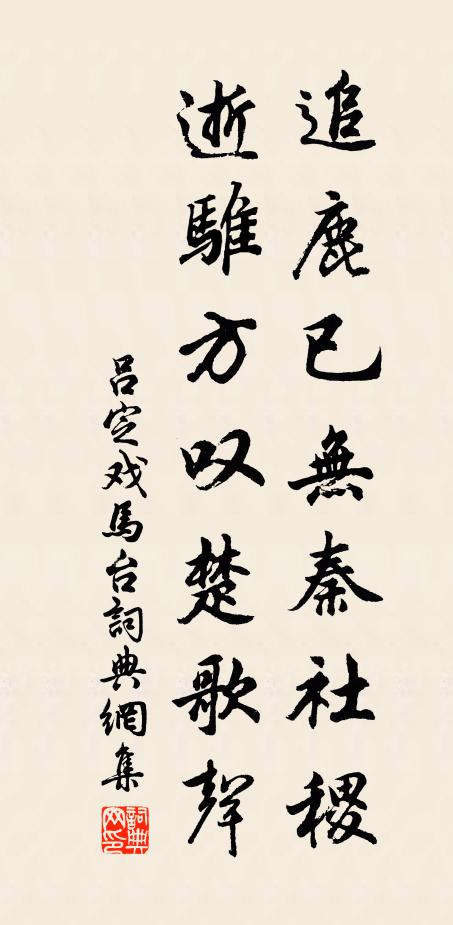 追鹿已無秦社稷
逝騅方叹楚歌聲
吕定戏馬台詞典網集
詞典网印